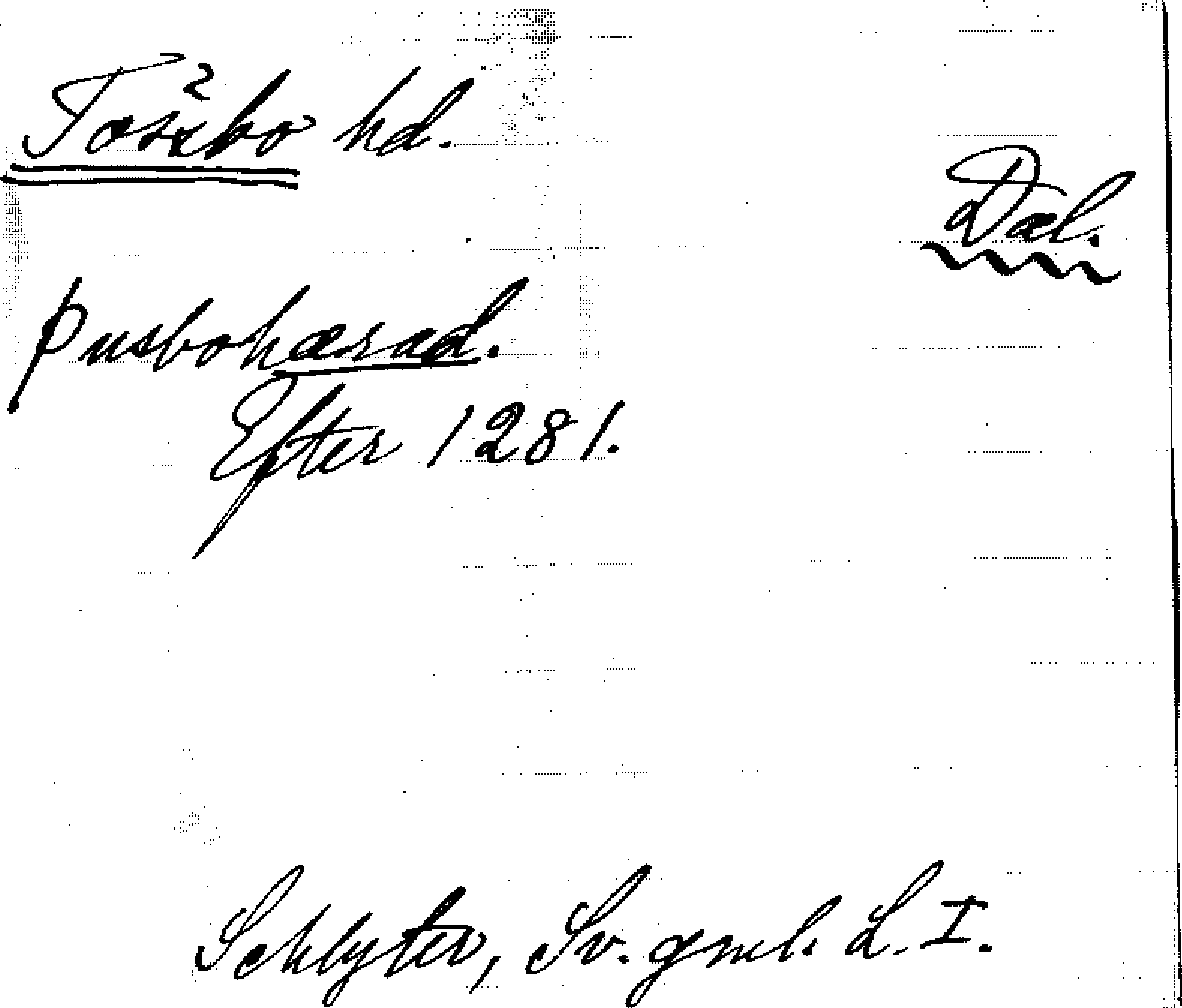 Tössbo hd.
Dal.
þusbohæræd.
Efter 1281.
Schlyter, Sv. gml. L. I.